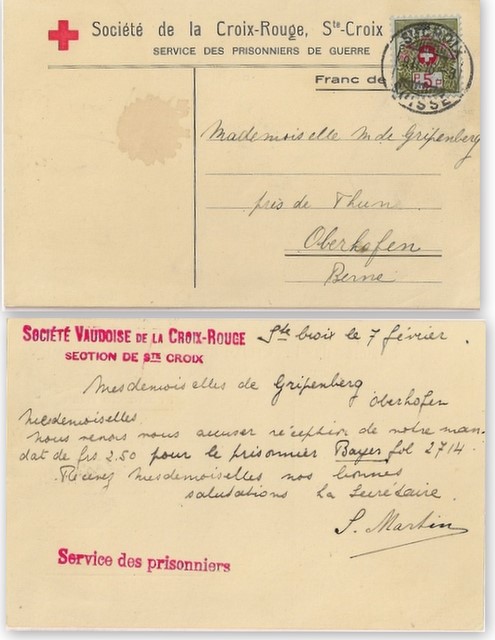 Société de la Croix-Rouge, Ste-Croix
SERVICE DES PRISONNIERS DE GUERRE
Franc de
STE CROIX
SUISSE
5
Mademoiselle M. de Gripenberg
près de Thune
Oberhofen
Berne
SOCIÉTÉ VAUDOISE DE LA CROIX-ROUGE
SECTION DE STE CROIX
Ste Croix le 7 février.
Mesdemoiselles de Gripenberg
Oberhofen
Mesdemoiselles
Nous venons vous accuser réception de notre man-
dat de frs 2.50 pour le prisonnier Bayer fol 2714.
Recevez Mesdemoiselles nos bonnes
salutations La Secrétaire.
S. Martin
Service des prisonniers